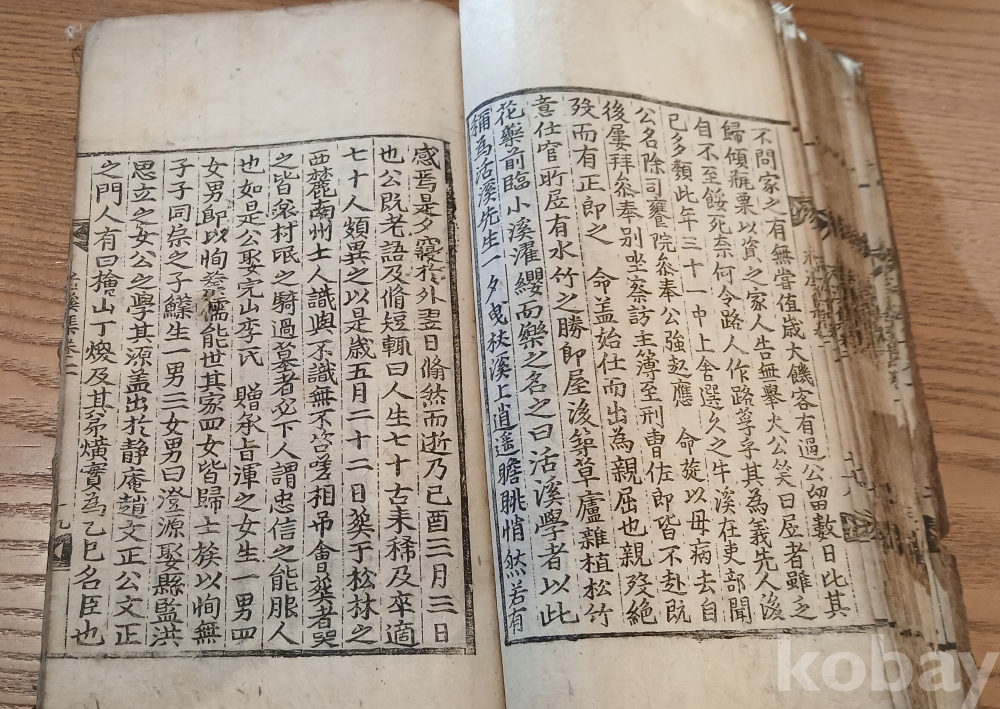 不問家之有無嘗值歲大饑客有過公留數日比其
歸傾瓶粟以資之家人告無擧火公笑曰居者雖乏
自不至餒死奈何令路人作路莩乎其為義先人後
己多類此年三十一中上舍選久之牛溪在吏部聞
公名除司饔院叅奉公強起應 命旋以母病去自
後屢拜叅奉別坐察訪主簿至刑曹佐郎皆不赴既
歿而有正郎之 命盖始仕而出為親屈也親歿絕
意仕宦所居有水竹之勝即屋後築草廬雜植松竹
花藥前臨小溪濯纓而樂之名之曰活溪學者以此
稱為活溪先生一夕曳杖溪上逍遥瞻眺悄然若有
感焉是夕寢於外翌日翛然而逝乃己酉三月三日
也公既老語及脩短輒曰人生七十古来稀及卒適
七十人頗異之以是歲五月二十二日葬于松林之
西麓南州士人識與不識無不咨嗟相吊會葬者哭
之皆哀村氓之騎過墓者必下人謂忠信之能服人
也如是公娶完山李氏 贈承旨渾之女生一男四
女男即以恂 儒能世其家四女皆歸士族以恂無
子子同宗之子 生一男三女男曰澄源娶縣監洪
思立之女公之學其源盖出於静庵趙文正公文正
之門人有曰橫山丁熡及其弟熿實為乙巳名臣也
溪集卷二
九
kobay